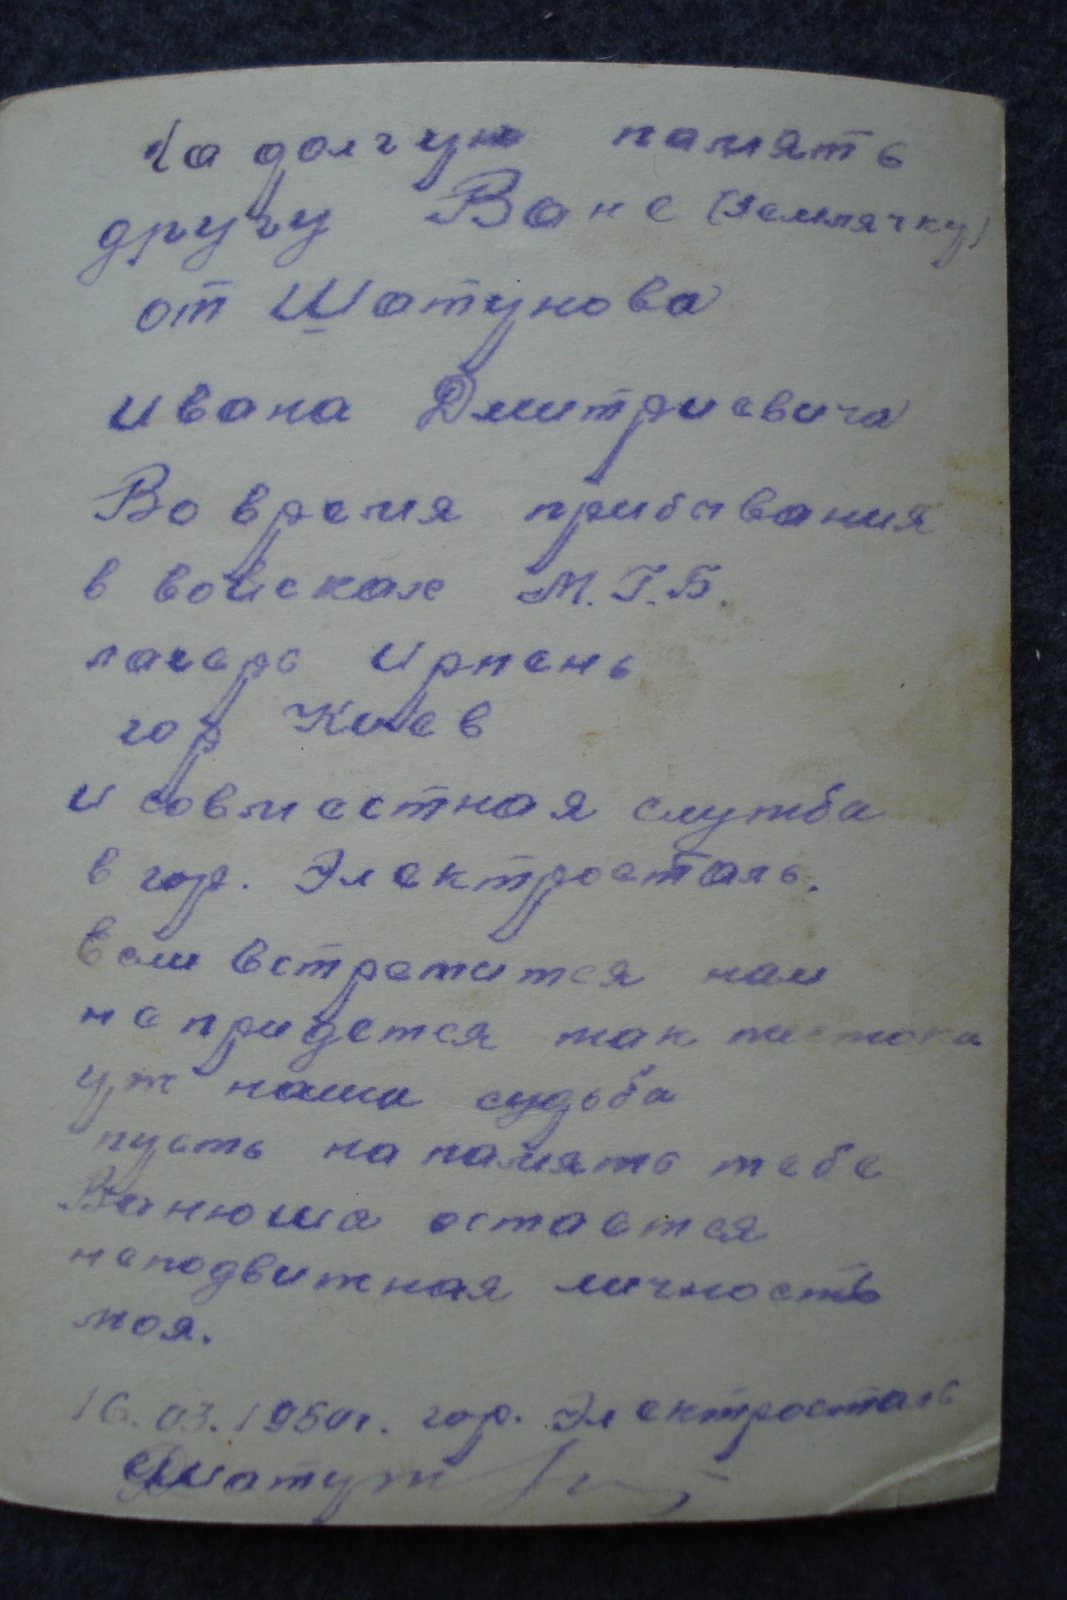 На долгую память
другу Ване (Землячку)
от Шатунова
ивана Дмитриевича
Во время прибывания
в войсках М.Г.Б.
лагерь Ирпень
гор Киев
и совместная служба
в гор. Электросталь.
Если встретится нам
не придется так жестока
уж наша судьба
пусть на память тебе
Ванюша остается
неподвижная личность
моя.
16.03.1950г. гор. Электросталь